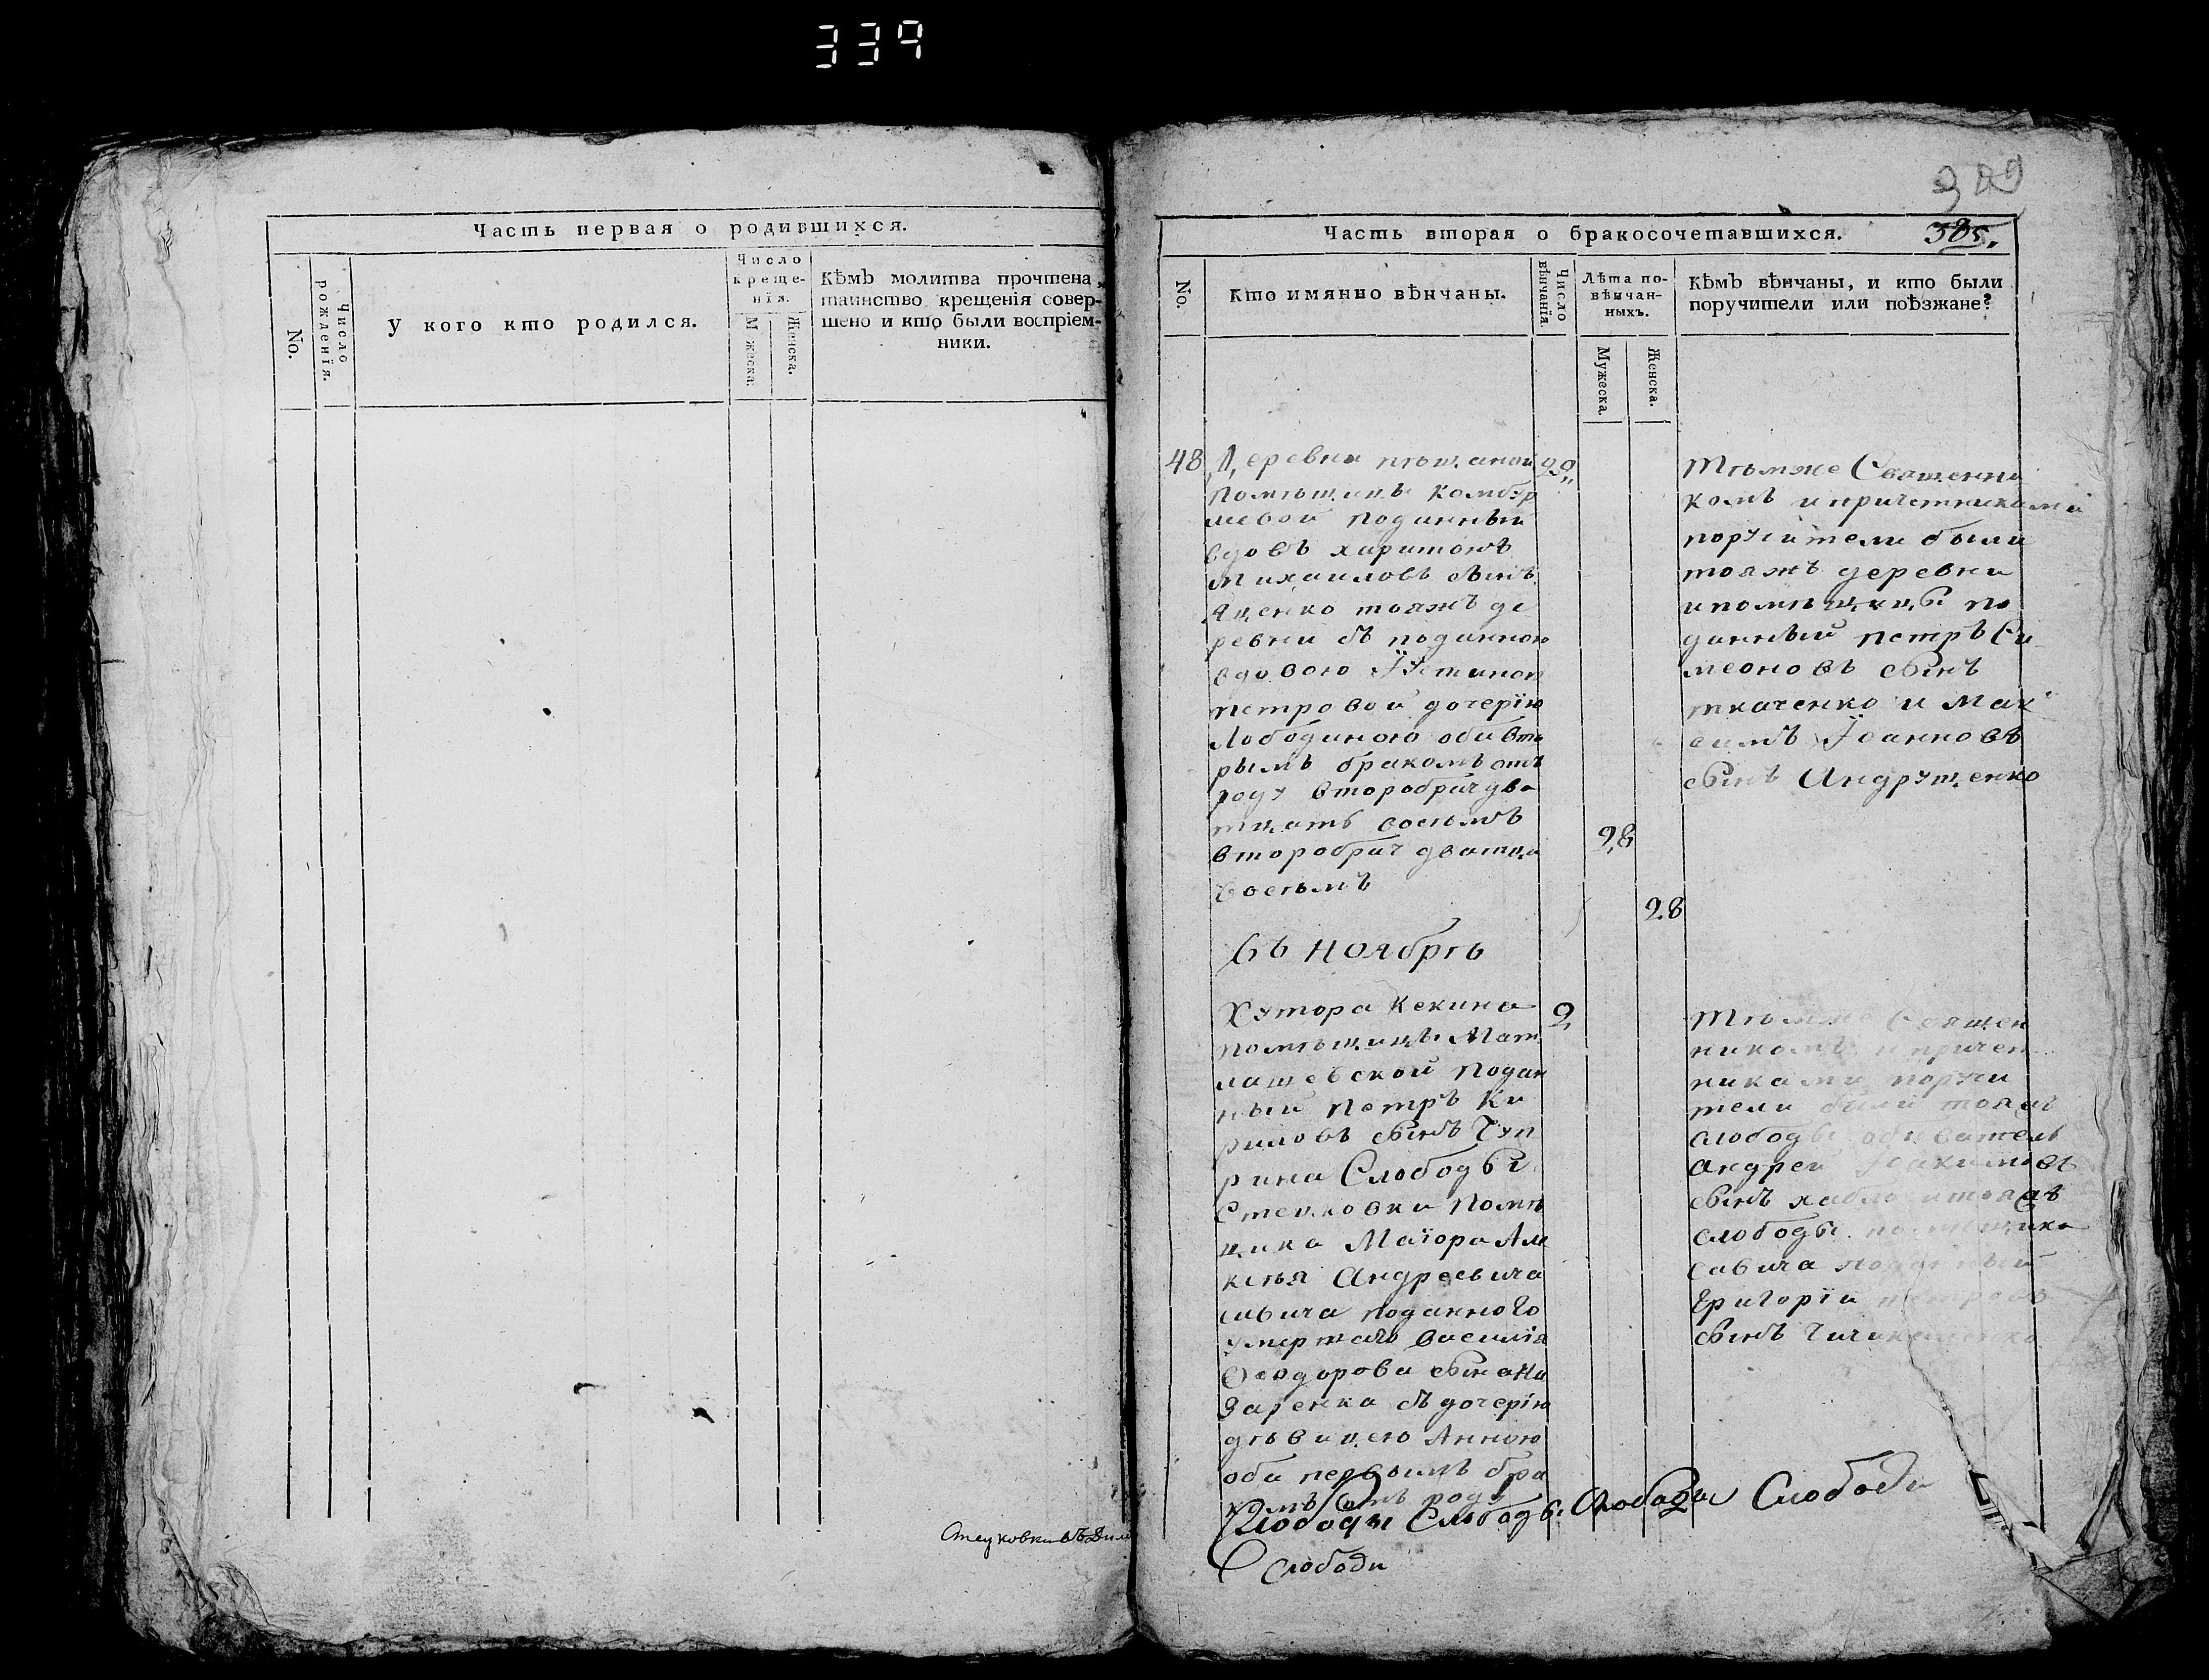 339
Часть первая о родившихся.
No.
Число рожденія.
У кого кто родился.
Число крещенія.
Мужеска.
Женска.
Кѣмъ молитва прочтена,
таинство крещенія совер-
шено и кто были воспріем-
ники.
Стецковки
389
385.
Часть вторая о бракосочетавшихся.
No.
Кто имянно вѣнчаны.
Число вѣнчанія
Лѣта по-
вѣнчан-
ныхъ.
Мужеска.
Женска.
Кѣмъ вѣнчаны, и кто были
поручители или поѣзжане?
48
Деревни пѣщаной
помѣщицы Комбур
леевой поданный
вдовъ харитонъ
михаиловъ сынъ
Яценко тояжъ де
ревни съ поданною
вдовою Іустиною
петровой дочерїю
Лободиною оби вто
рымъ бракомъ отъ
роду второбрач два
тцать восемъ
второбрач дватца
восемъ
28
28
Тѣмже Священни
комъ и причетниками
поручители были
тояжъ деревни
и помѣщицы по
данный петръ Си
меоновъ сынъ
ткаченко и Мак
симъ Іоанновъ
сынъ Андрущенко
Въ ноябрѣ
Хутора Кекина
2
помѣщицы Мат
лашевской подан
ный Петръ Ки
риловъ сынъ Чуп
рина Слободы
Стецковки помѣ
щика Маїора Але
ксѣя Андреевича
савича поданного
умертаго василїя
Феодорова сына На
заренка съ дочерїю
дѣвицею Анною
оби первымъ бра
комъ отъ роду
Тѣмже Священ
никомъ и причет
никами поручи
тели были тояжъ
слободы обиватель
андрей Іоакимовъ
сынъ хабло и тояжъ
слободы помѣщика
савича поданный
Григорїи петровъ
сынъ
Слободы Слободы Слободи Слободи
Слободи